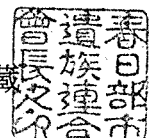 春日部市
遺族連合
會長之印